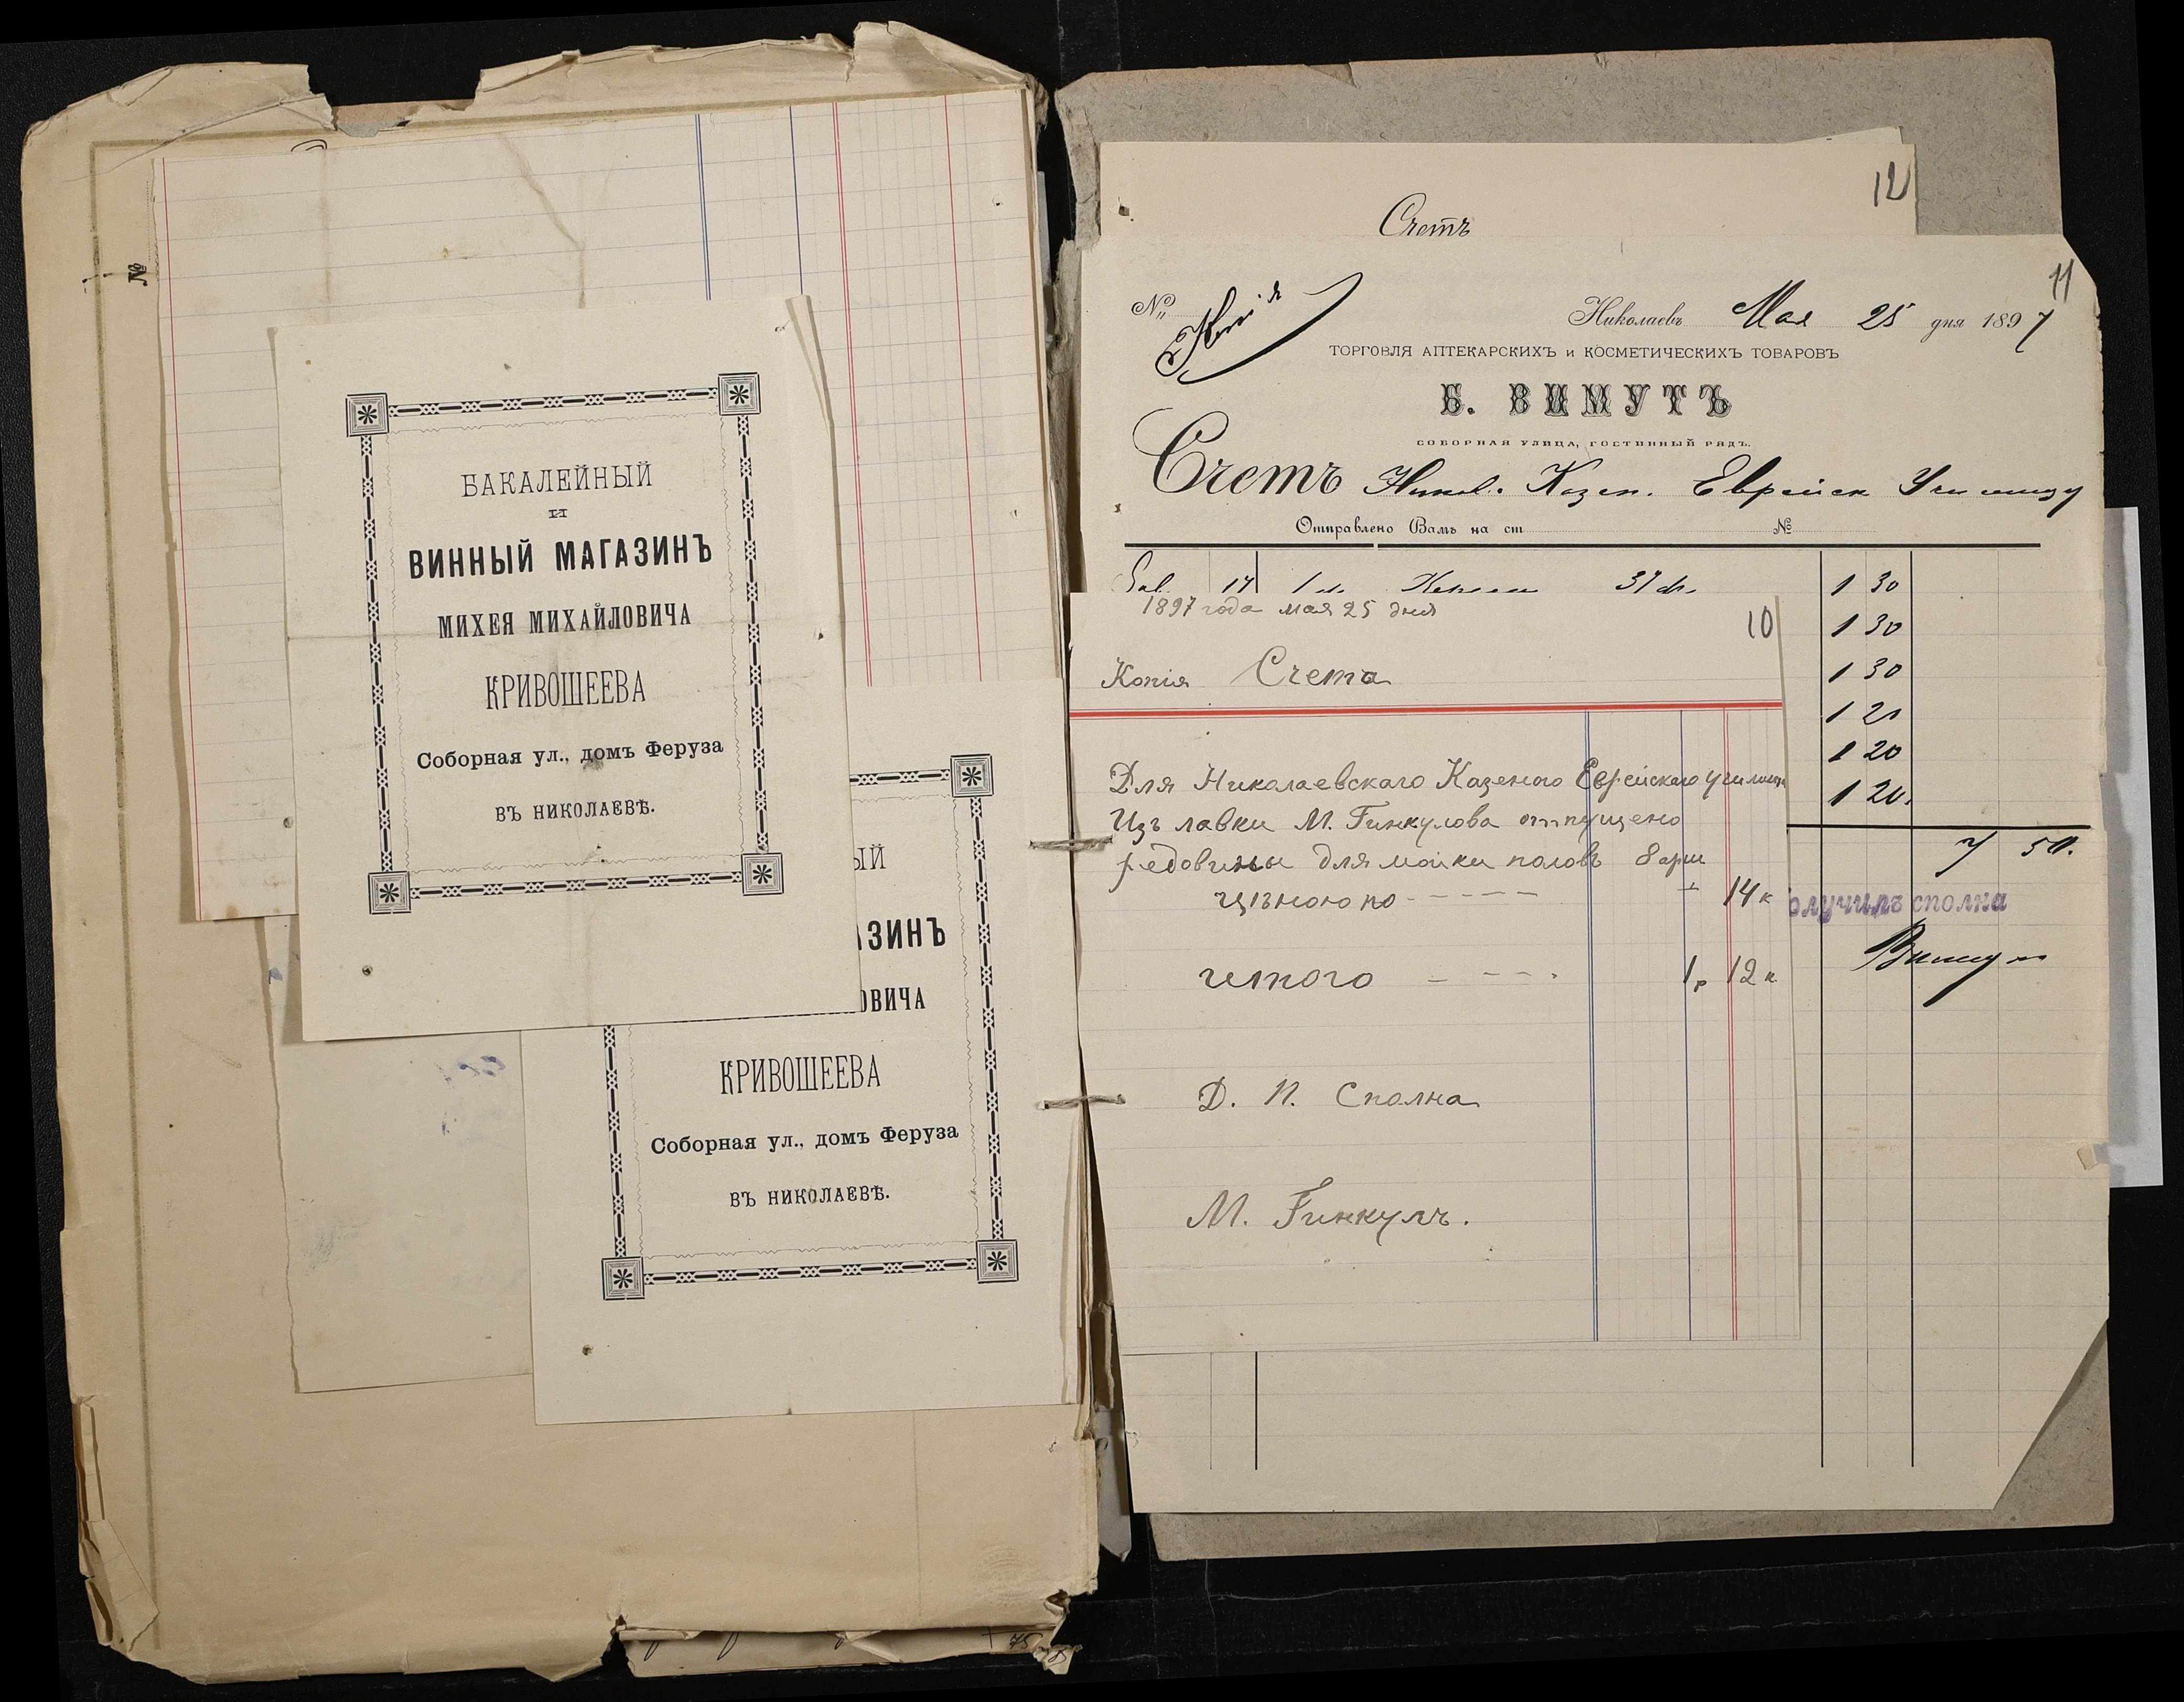 №
БАКАЛЕЙНЫЙ
И
ВИННЫЙ МАГАЗИНЪ
МИХЕЯ МИХАЙЛОВИЧА
КРИВОШЕЕВА
Соборная ул., домъ Феруза
ВЪ НИКОЛАЕВѢ.
ЫЙ
АЗИНЪ
ОВИЧА
КРИВОШЕЕВА
Соборная ул., домъ Феруза
ВЪ НИКОЛАЕВѢ.
75
12
Счетъ
11
№ Копія
Николаевъ Мая 25 дня 1897
ТОРГОВЛЯ АПТЕКАРСКИХЪ и КОСМЕТИЧЕСКИХЪ ТОВАРОВЪ
Б. ВИМУТЪ
СОБОРНАЯ УЛИЦА, ГОСТИННЫЙ РЯДЪ.
Счетъ Никол. Казен. Еврейск Училищу
Отправлено Вамъ на ст №
17 1 30
1 30
1 30
1 20
1 20
1 20.
7 50.
олучилъ сполна
Вимутъ
1897 года мая 25 дня
10
Копія Счета
Для Николаевскаго Казеного Еврейскаго училища
Изъ лавки М. Гинкулова отпущено
редовины для мойки половъ 8 арш
цѣною по - - - - 14 к
итого - - - - 1 р 12 к
Д. П. Сполна
М. Гинкулъ.